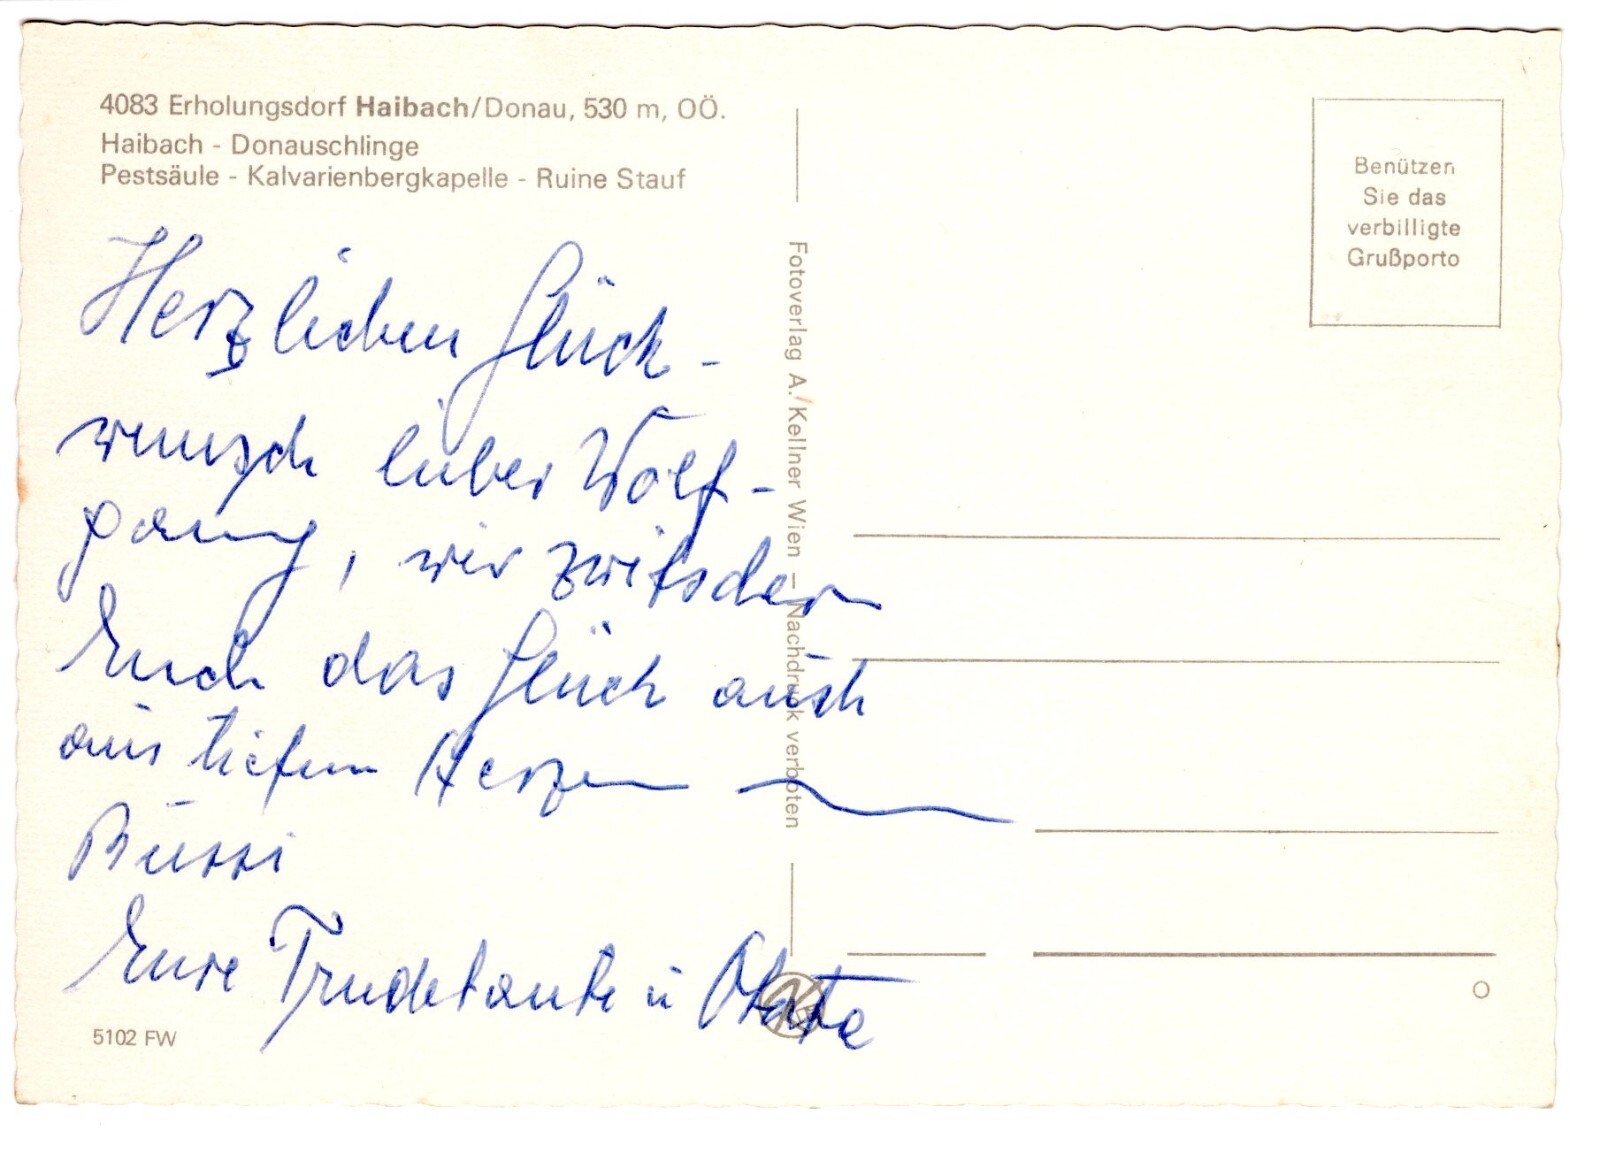 4083 Erholungsdorf Haibach/Donau, 530 m, OÖ.
Haibach - Donauschlinge
Pestsäule - Kalvarienbergkapelle - Ruine Stauf
Benützen
Sie das
verbilligte
Grußporto
Herzlichen Glück-
wunsch lieber Wolf-
gang, wir zwitschern
Euch das Glück auch
aus tiefem Herzen
Bussi
Eure Trudetante u
Fotoverlag A. Kellner Wien – Nachdruck verboten
5102 FW